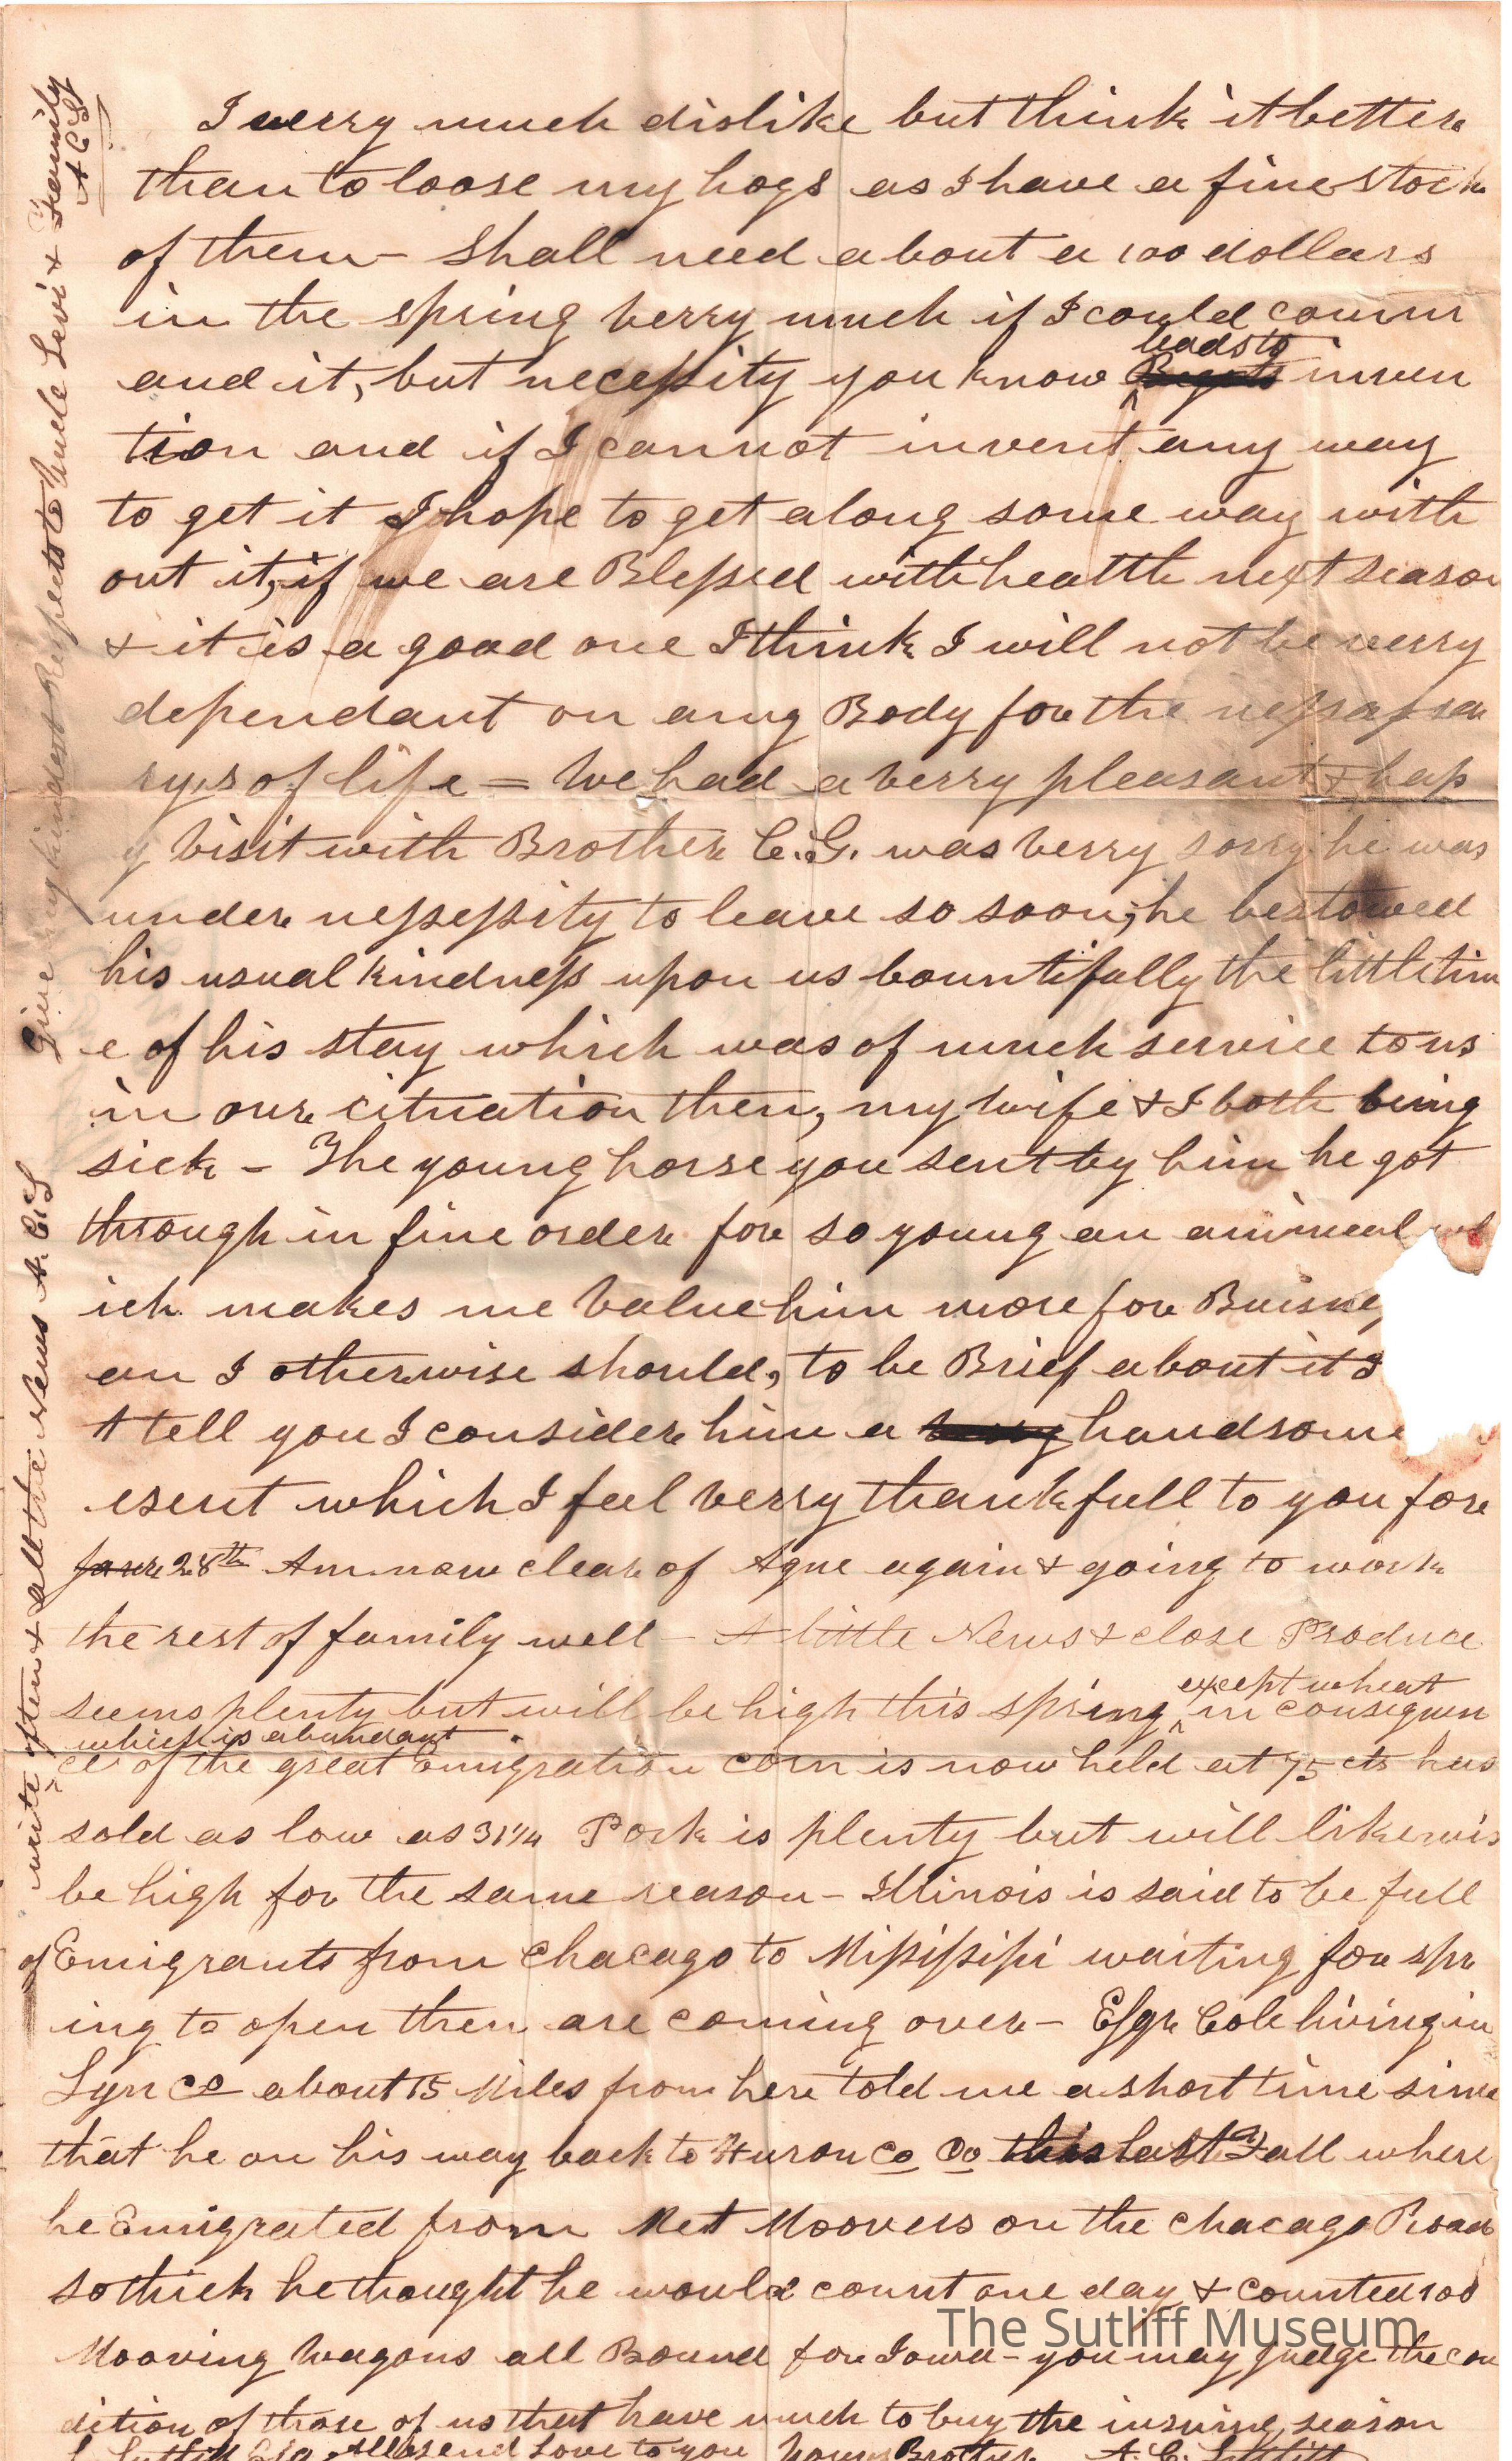 I verry much dislike but think it better
than to loose my hogs as I have a fine stock
of them - Shall need about a 100 dollars
in the spring verry much if I could comm
leads to
and it, but necessity you know inven
tion and if I cannot invent any way
to get it I hope to get along some way with
out it, if we are Blessed with health next season
& it is a good one I think I will not be verry
dependant on any Body for the nessassa
ryes of life = We had a verry pleasant & hap
y visit with Brother C.G. was verry sorry he was
under nessessity to leave so soon, he bestowed
his usual kindness upon us bountifully the little tim
e of his stay which was of much service to us
in our cituation then, my wife & I both being
sick - The young horse you sent by him he got
through in fine order for so young an animal wh
ich makes me value him more for Buisne
an I otherwise should, to be Brief about it I
t tell you I consider him a handsome
esent which I feel verry thankfull to you for
28th Am now clear of Ague again & going to work
the rest of family well - A little News & close Produce
except wheat
seems plenty but will be high this spring in consequen
which is abundant
ce of the great Emigration corn is now held at 75 cts has
sold as low as 31¼ Pork is plenty but will likewis
be high for the same reason - Illinois is said to be full
of Emigrants from Chacago to Missisippi waiting for spr
ing to open then are coming over - Esqr Cole living in
Lyn Co about 15 Miles from here told me a short time since
that he on his way back to Huron Co O last Fall where
he Emigrated from Met Moovers on the Chacago Road
so thick he thought he would count one day & counted 100
Mooving Wagons all Bound for Iowa - you may judge the con
dition of those of us that have much to buy the insuing season
L Sutliff Esq All send Love to you Yours Brother A. C. Sutliff
Give my kindest Respects to Uncle Levi & Family
A C S
write often & all the News A. C. S
The Sutliff Museum